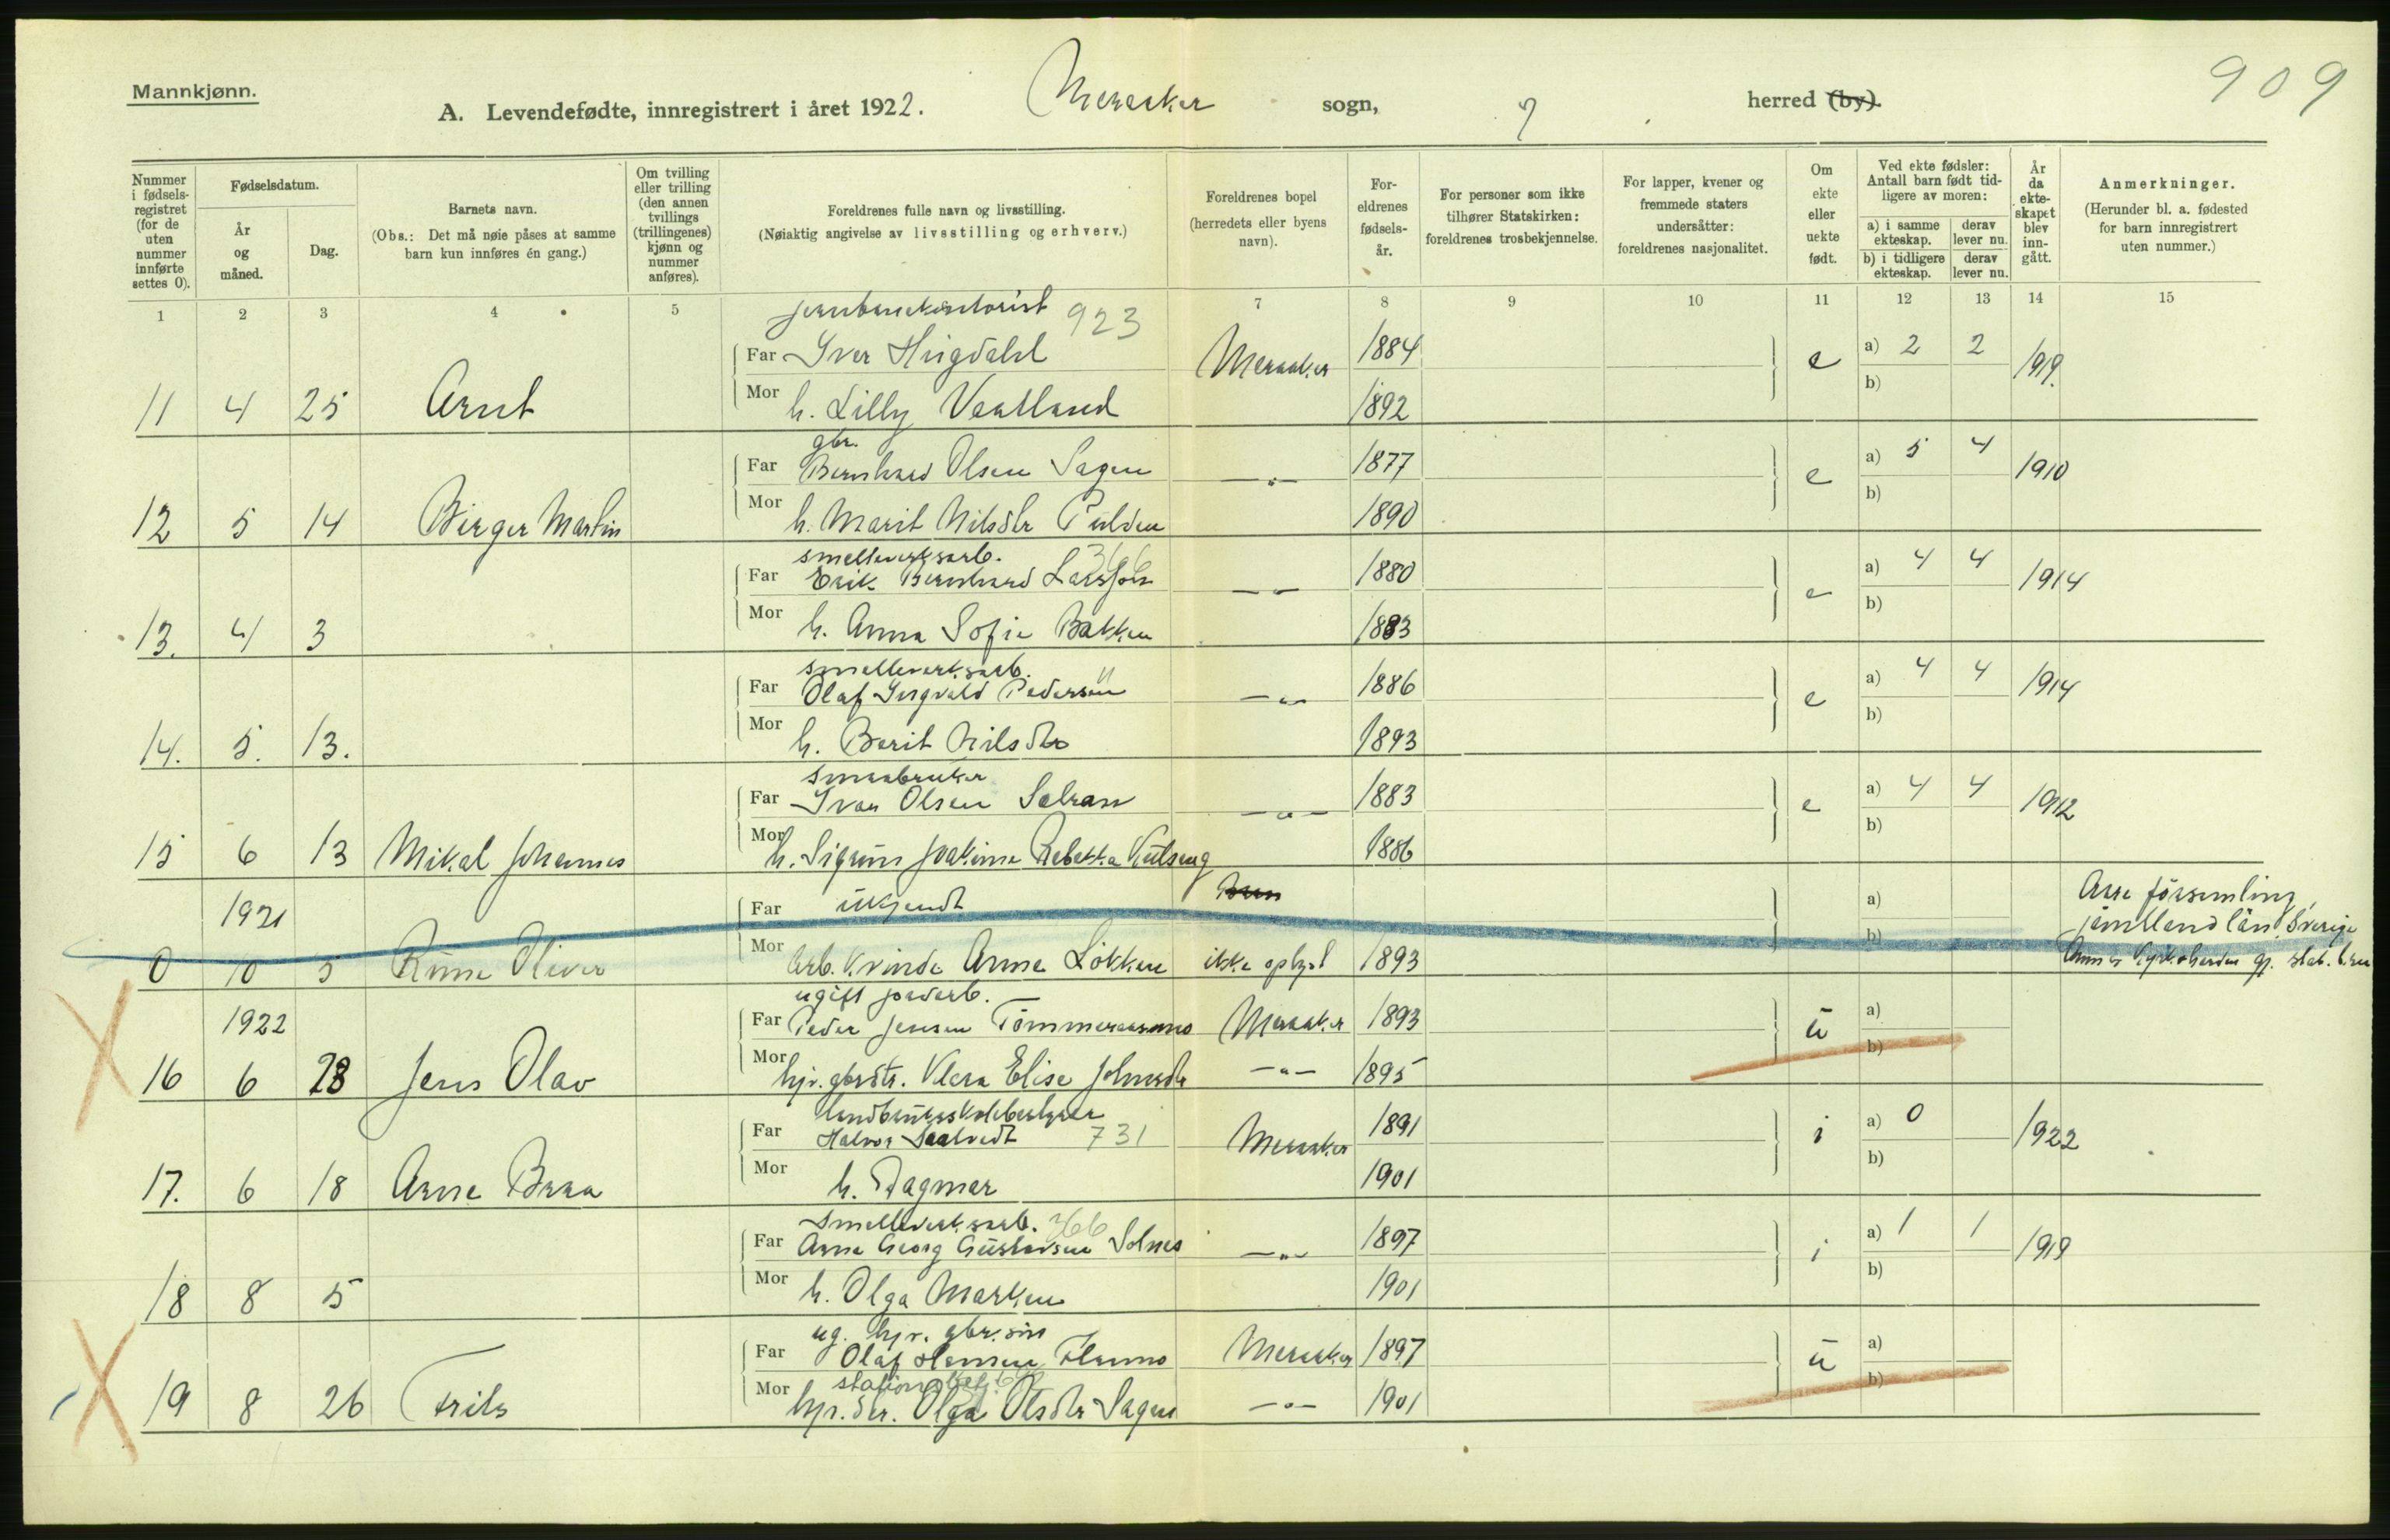 Mannkjønn.
909
A. Levendefødte, innregistrert i året 1922. Meraker sogn, herred (by).
Nummer i fødsels-registret (for de uten nummer innførte settes 0).
Fødselsdatum.
År og måned.
Dag.
Barnets navn.
(Obs.: Det må nøie påses at samme barn kun innføres én gang.)
Om tvilling eller trilling (den annen tvillings (trillingenes) kjønn og nummer anføres).
Foreldrenes fulle navn og livsstilling.
(Nøiaktig angivelse av livsstilling og erhverv.)
Foreldrenes bopel
(herredets eller byens navn).
For-eldrenes fødsels-år.
For personer som ikke tilhører Statskirken: foreldrenes trosbekjennelse.
For lapper, kvener og fremmede staters undersåtter: foreldrenes nasjonalitet.
Om ekte eller uekte født.
Ved ekte fødsler: Antall barn født tid-ligere av moren:
a) i samme ekteskap. derav lever nu.
b) i tidligere ekteskap. derav lever nu.
År da ekte-skapet blev inn-gått.
Anmerkninger.
(Herunder bl. a. fødested for barn innregistrert uten nummer.)
1 2 3 4 5 7 8 9 10 11 12 13 14 15
923
Far Iver Hugdahl Meraaker 1884 e a) 2 2 1919.
11 4 25 Arnt Mor h. Lilly Vaatland 1892 b)
gbr.
Far Bernhard Olsen Sagen —"— 1877 e a) 5 4 1910
12 5 14 Birger Martin Mor h. Marit Nilsdtr Pulden 1890 b)
smelteverksarb. 366
Far Erik Bernhard Larsson —"— 1880 e a) 4 4 1914
13. 4 3 Mor h. Anna Sofie Bakken 1883 b)
smelteverksarb. "
Far Olaf Ingvald Pedersen —"— 1886 e a) 4 4 1914
14. 5. 13. Mor h. Berit Nilsdtr 1893 b)
smaabruker
Far Ivar Olsen —"— 1883 e a) 4 4 1912
15 6 13 Mikal Johannes Mor h. Sigrun Joakime Rebekka 1886 b)
1921 Far ukjendt a) Åre församling, jämtland län, Sverige
0 10 5 Rune Oliver Mor Arb. kvinde Anna Løkken ikke oplyst 1893 b)
ugift jordarb.
1922 Far Peder Jensen Meraaker 1893 u a)
16 6 28 Jens Olav Mor hjv. gbrdtr. Klara Elise Johnsdtr —"— 1895 b)
landbruksskolebestyrer
Far Halvor 731 Meraaker 1891 i a) 0 1922
17. 6 18 Arne Braa Mor h. Dagmar 1901 b)
smelteverksarb. 366
Far Arne Georg Gustavsen Solnes —"— 1897 i a) 1 1 1919
18 8 5 Mor h. Olga Marken 1901 b)
ug. hjv. gbr.søn
Far Olaf Hansen Meraaker 1897 u a)
19 8 26 Frits Mor hjv. dtr. Olga Olsdtr Sagen —"— 1901 b)